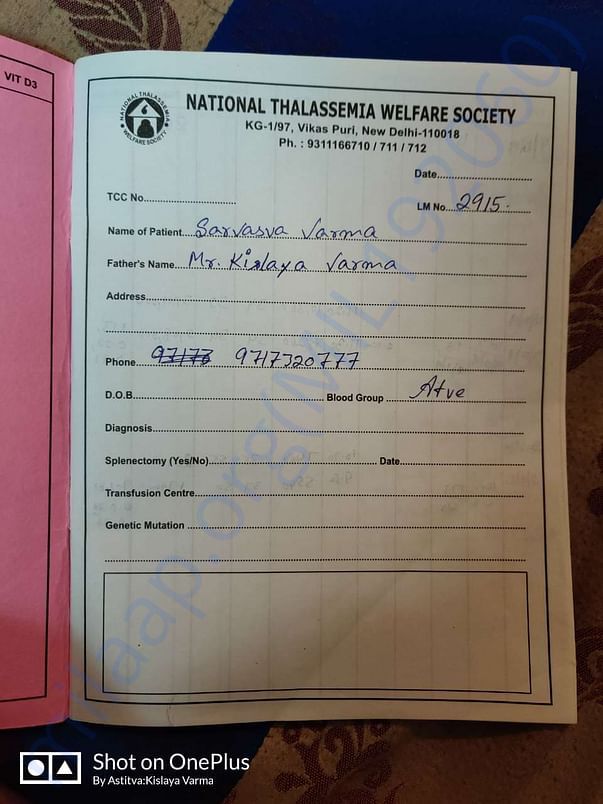 VIT D3
NATIONAL THALASSEMIA WELFARE SOCIETY
NATIONAL THALASSEMIA WELFARE SOCIETY
KG-1/97, Vikas Puri, New Delhi-110018
Ph. : 9311166710 / 711 / 712
Date
TCC No. LM No. 2915.
Name of Patient Sarvasva Varma
Father's Name Mr. Kislaya Varma
Address
Phone 97173 9717320777
D.O.B. Blood Group A+ve
Diagnosis
Splenectomy (Yes/No) Date
Transfusion Centre
Genetic Mutation
milaap.org(MIL192060)
Shot on OnePlus
By Astitva:Kislaya Varma